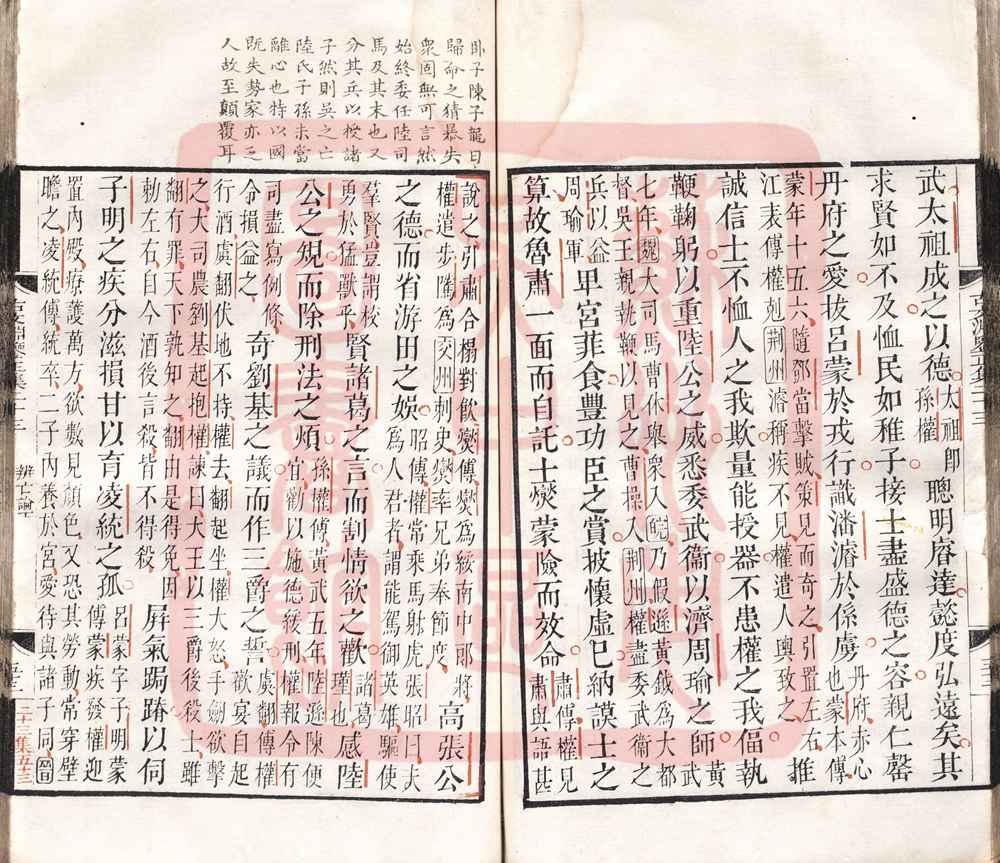 武太祖成之以德
太祖卽
孫權
聰明睿達懿度弘遠矣其
求賢如不及恤民如稚子接士盡盛德之容親仁罄
丹府之愛拔呂蒙於戎行識潘濬於係虜
丹府赤心
也蒙本傳
蒙年十五六隨鄧當擊賊策見而奇之引置左右
江表傳權剋荆州濬稱疾不見權遣人輿致之
推
誠信士不恤人之我欺量能授器不患權之我偪執
鞭鞠躬以重陸公之威悉委武衞以濟周瑜之師
黃
武
七年魏大司馬曹休舉衆入皖乃假遜黃鉞爲大都
督吳王親執鞭以見之曹操入荆州權盡委武衞之
兵以益
周瑜軍
卑宮菲食豐功臣之賞披懷虛己納謨士之
算故魯肅一面而自託士燮蒙險而效命
肅傳權見
肅與語甚
卧子陳子龍曰
歸命之猜暴失
衆固無可言然
始終委任陸司
馬及其末也又
分其兵以授諸
子然則吳之亡
陸氏子孫未當
離心也特以國
旣失勢家亦乏
人故至顛覆耳
說之引肅合榻對飲燮傳燮爲綏南中郎將
權遣步隲爲交州刺史燮率兄弟奉節度
高張公
之德而省游田之娛
昭傳權常乘馬射虎張昭曰夫
爲人君者謂能駕御英雄驅使
羣賢豈謂校
勇於猛獸乎
賢諸葛之言而割情欲之歡
諸葛
瑾也
感陸
公之規而除刑法之煩
孫權傳黃武五年陸遜陳便
宜勸以施德緩刑權報令有
司盡寫例條
令損益之
奇劉基之議而作三爵之誓
虞翻傳權
歡宴自起
行酒虞翻伏地不持權去翻起坐權大怒手劍欲擊
之大司農劉基起抱權諫曰大王以三爵後殺士雖
翻有罪天下孰知之翻由是得免因
勑左右自今酒後言殺皆不得殺
屏氣跼蹐以伺
子明之疾分滋損甘以育凌統之孤
呂蒙字子明蒙
傳蒙疾發權迎
置內殿療護萬方欲數見顏色又恐其勞動常穿壁
瞻之凌統傳統卒二子內養於宮愛待與諸子同
辨亡論